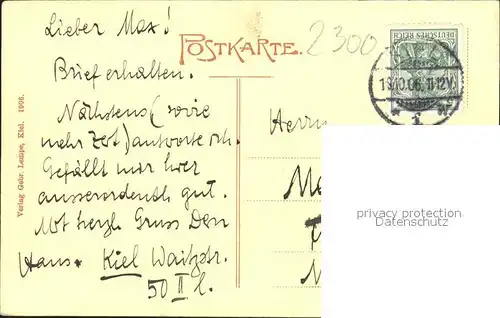 Lieber Max!
Brief erhalten.
Nächstens (sowie
mehr Zeit) antworte ich.
Gefällt mir hier
ausserordentlich gut.
Mit herzl. Gruss Dein
Hans. Kiel Waitzstr.
50 II l.
POSTKARTE.
2300
DEUTSCHES REICH
19.10.06. 11-12V.
Herrn
privacy protection
Datenschutz
Verlag Gebr. Lempe, Kiel. 1906.